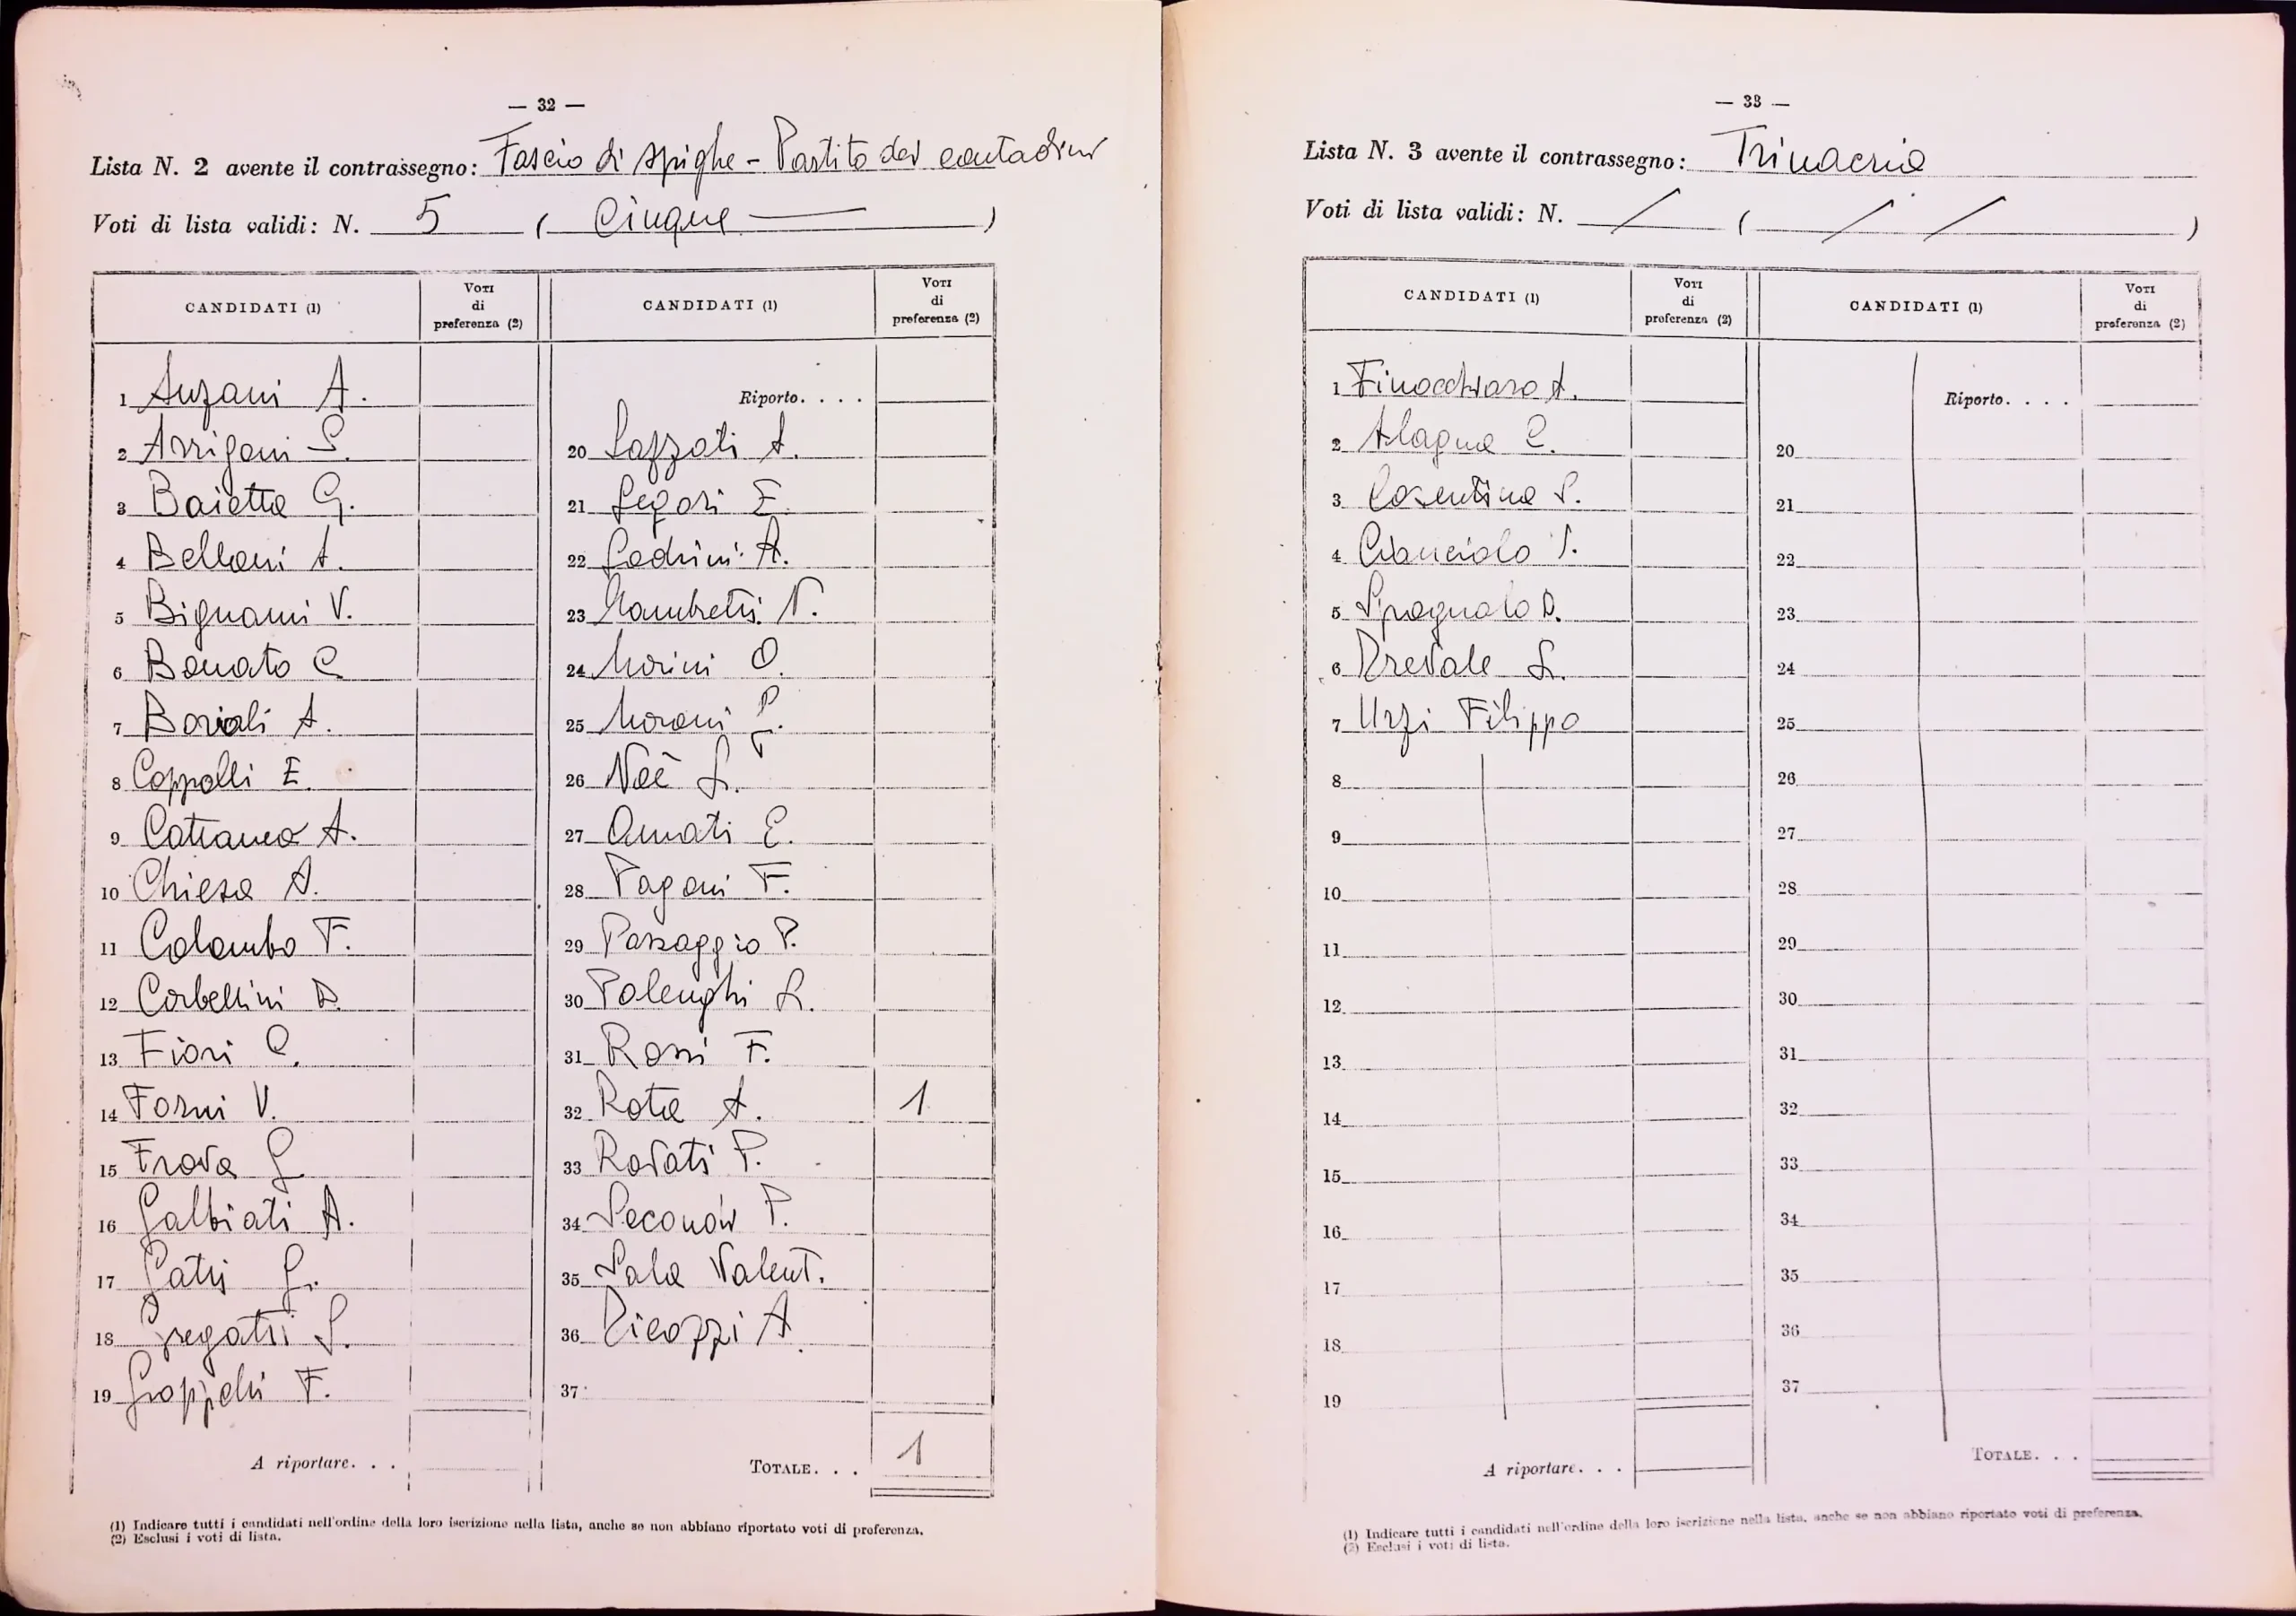 — 32 —
Lista N. 2 avente il contrassegno: Fascio di spighe - Partito dei contadini
Voti di lista validi: N. 5 ( Cinque )
CANDIDATI (1)
Voti
di
preferenza (2)
1 Anzani A.
2 Arrigoni S.
3 Baietta G.
4 Belloni A.
5 Bignami V.
6 Bonato C
7 Boriali A.
8 Coppolli E.
9 Cattaneo A.
10 Chiesa A.
11 Colombo F.
12 Corbellini D.
13 Fiori C.
14 Forni V.
15 Frova G.
16 Galbiati A.
17 Gatti G.
18 Gregatti S.
19 Groppelli F.
A riportare. . .
CANDIDATI (1)
Voti
di
preferenza (2)
Riporto. . . .
20 Lazzati A.
21 Legori E.
22 Lodrini A.
23 Mambretti N.
24 Morini O.
25 Moroni P.
26 Noè L.
27 Omati E.
28 Pagani F.
29 Passaggio P.
30 Polenghi L.
31 Rossi F.
32 Rota A. 1
33 Rovati P.
34 Secondi P.
35 Sala Valent.
36 Zicozzi A.
37
TOTALE. . . 1
(1) Indicare tutti i candidati nell'ordine della loro iscrizione nella lista, anche se non abbiano riportato voti di preferenza.
(2) Esclusi i voti di lista.
— 33 —
Lista N. 3 avente il contrassegno: Trinacria
Voti di lista validi: N. / ( / / )
CANDIDATI (1)
Voti
di
preferenza (2)
1 Finocchiaro A.
2 Alagna C.
3 Cosentino S.
4 Cianciolo S.
5 Spagnolo D.
6 Drevale L.
7 Urzi Filippo
8
9
10
11
12
13
14
15
16
17
18
19
A riportare. . .
CANDIDATI (1)
Voti
di
preferenza (2)
Riporto. . . .
20
21
22
23
24
25
26
27
28
29
30
31
32
33
34
35
36
37
TOTALE. . .
(1) Indicare tutti i candidati nell'ordine della loro iscrizione nella lista, anche se non abbiano riportato voti di preferenza.
(2) Esclusi i voti di lista.